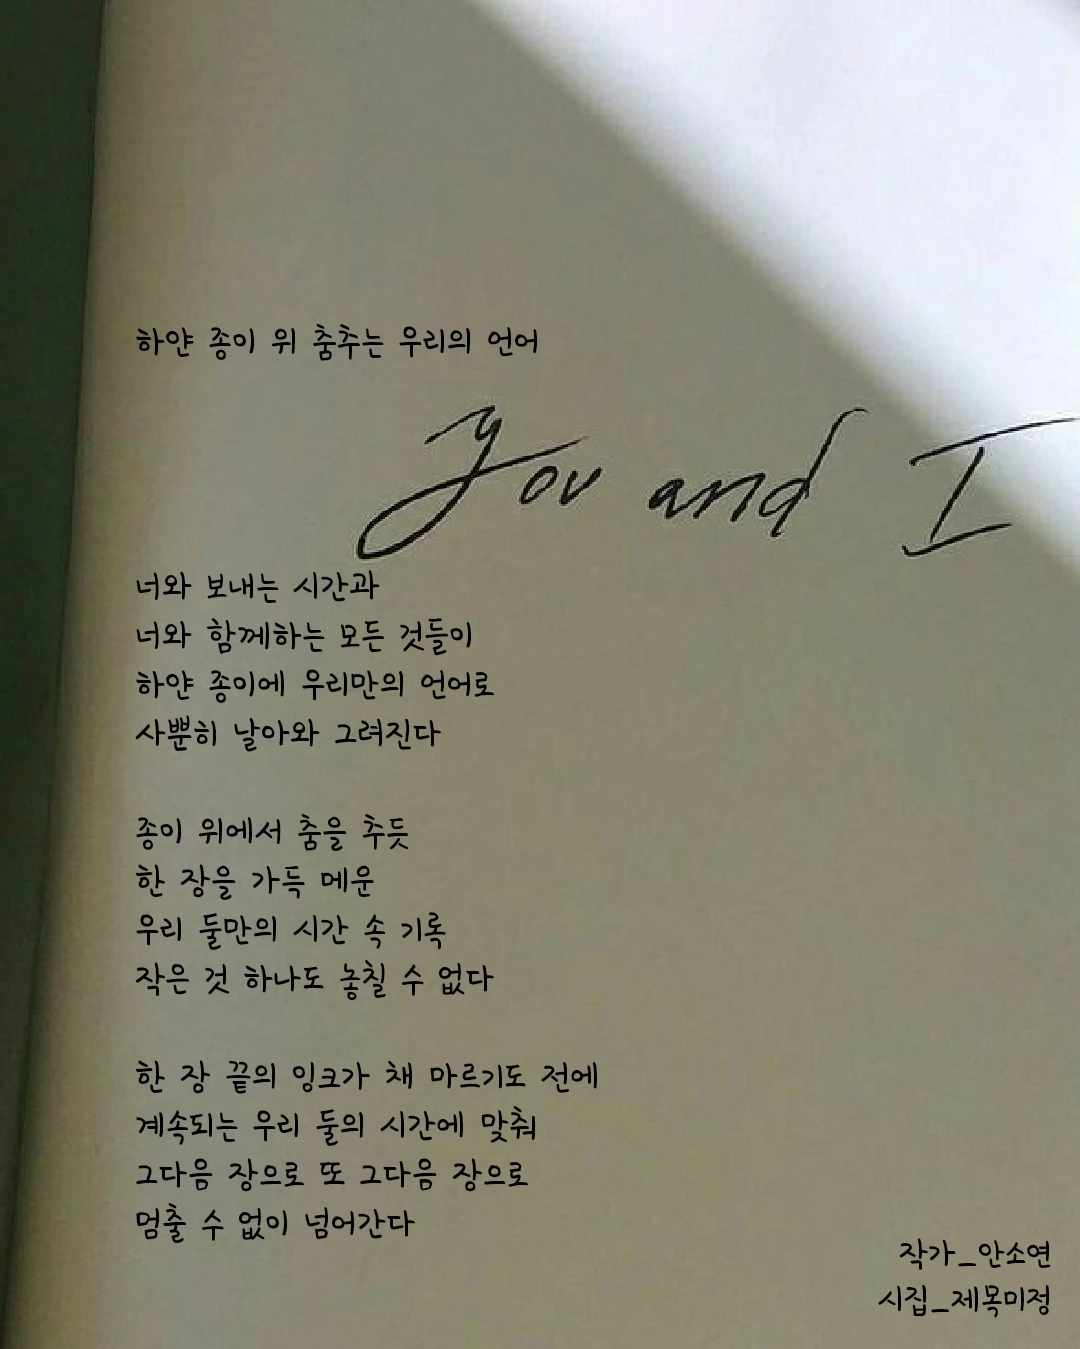 하얀 종이 위 춤추는 우리의 언어
You and I
너와 보내는 시간과
너와 함께하는 모든 것들이
하얀 종이에 우리만의 언어로
사뿐히 날아와 그려진다
종이 위에서 춤을 추듯
한 장을 가득 메운
우리 둘만의 시간 속 기록
작은 것 하나도 놓칠 수 없다
한 장 끝의 잉크가 채 마르기도 전에
계속되는 우리 둘의 시간에 맞춰
그다음 장으로 또 그다음 장으로
멈출 수 없이 넘어간다
작가_안소연
시집_제목미정